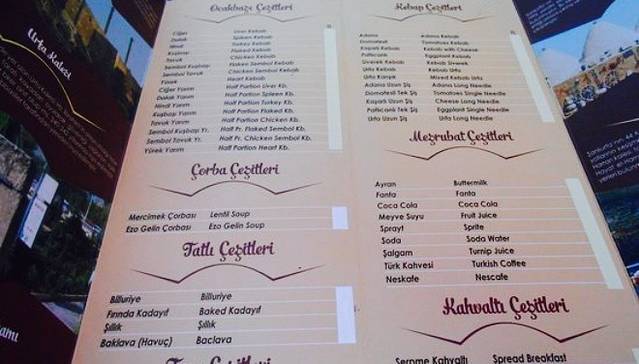 Urfa Kalesi
Ocakbaşı Çeşitleri
Ciğer Liver Kebab
Dalak Spleen Kebab
Hindi Turkey Kebab
Kuşbaşı Flaked Kebab
Tavuk Chicken Kebab
Sembol Kuşbaşı Flaked Sembol Kebab
Sembol Tavuk Chicken Sembol Kebab
Yürek Heart Kebab
Ciğer Yarım Half Portion Liver Kb.
Dalak Yarım Half Portion Spleen Kb.
Hindi Yarım Half Portion Turkey Kb.
Kuşbaşı Yarım Half Portion Flaked Kb.
Tavuk Yarım Half Portion Chicken Kb.
Sembol Kuşbaşı Yr. Half Pr. Flaked Sembol Kb.
Sembol Tavuk Yr. Half Pr. Chicken Sembol Kb.
Yürek Yarım Half Portion Heart Kb.
Çorba Çeşitleri
Mercimek Çorbası Lentil Soup
Ezo Gelin Çorbası Ezo Gelin Soup
Tatlı Çeşitleri
Billuriye Billuriye
Fırında Kadayıf Baked Kadayıf
Şıllık Şıllık
Baklava (Havuç) Baclava
Çeşitleri
Kebap Çeşitleri
Adana Adana Kebab
Domatesli Tomatoes Kebab
Kaşarlı Kebab Kebab with Cheese
Patlıcanlı Eggplant Kebab
Siverek Kebab Kebab Siverek
Urfa Kebab Kebab Urfa
Urfa Karışık Mixed Kebab Urfa
Adana Uzun Şiş Adana Long Needle
Domatesli Tek Şiş Tomatoes Single Needle
Kaşarlı Uzun Şiş Cheese Long Needle
Patlıcanlı Tek Şiş Eggplant Single Needle
Urfa Uzun Şiş Urfa Long Needle
Meşrubat Çeşitleri
Ayran Buttermilk
Fanta Fanta
Coca Cola Coca Cola
Meyve Suyu Fruit Juice
Sprayt Sprite
Soda Soda Water
Şalgam Turnip Juice
Türk Kahvesi Turkish Coffee
Neskafe Nescafe
Kahvaltı Çeşitleri
Serpme Kahvaltı Spread Breakfast